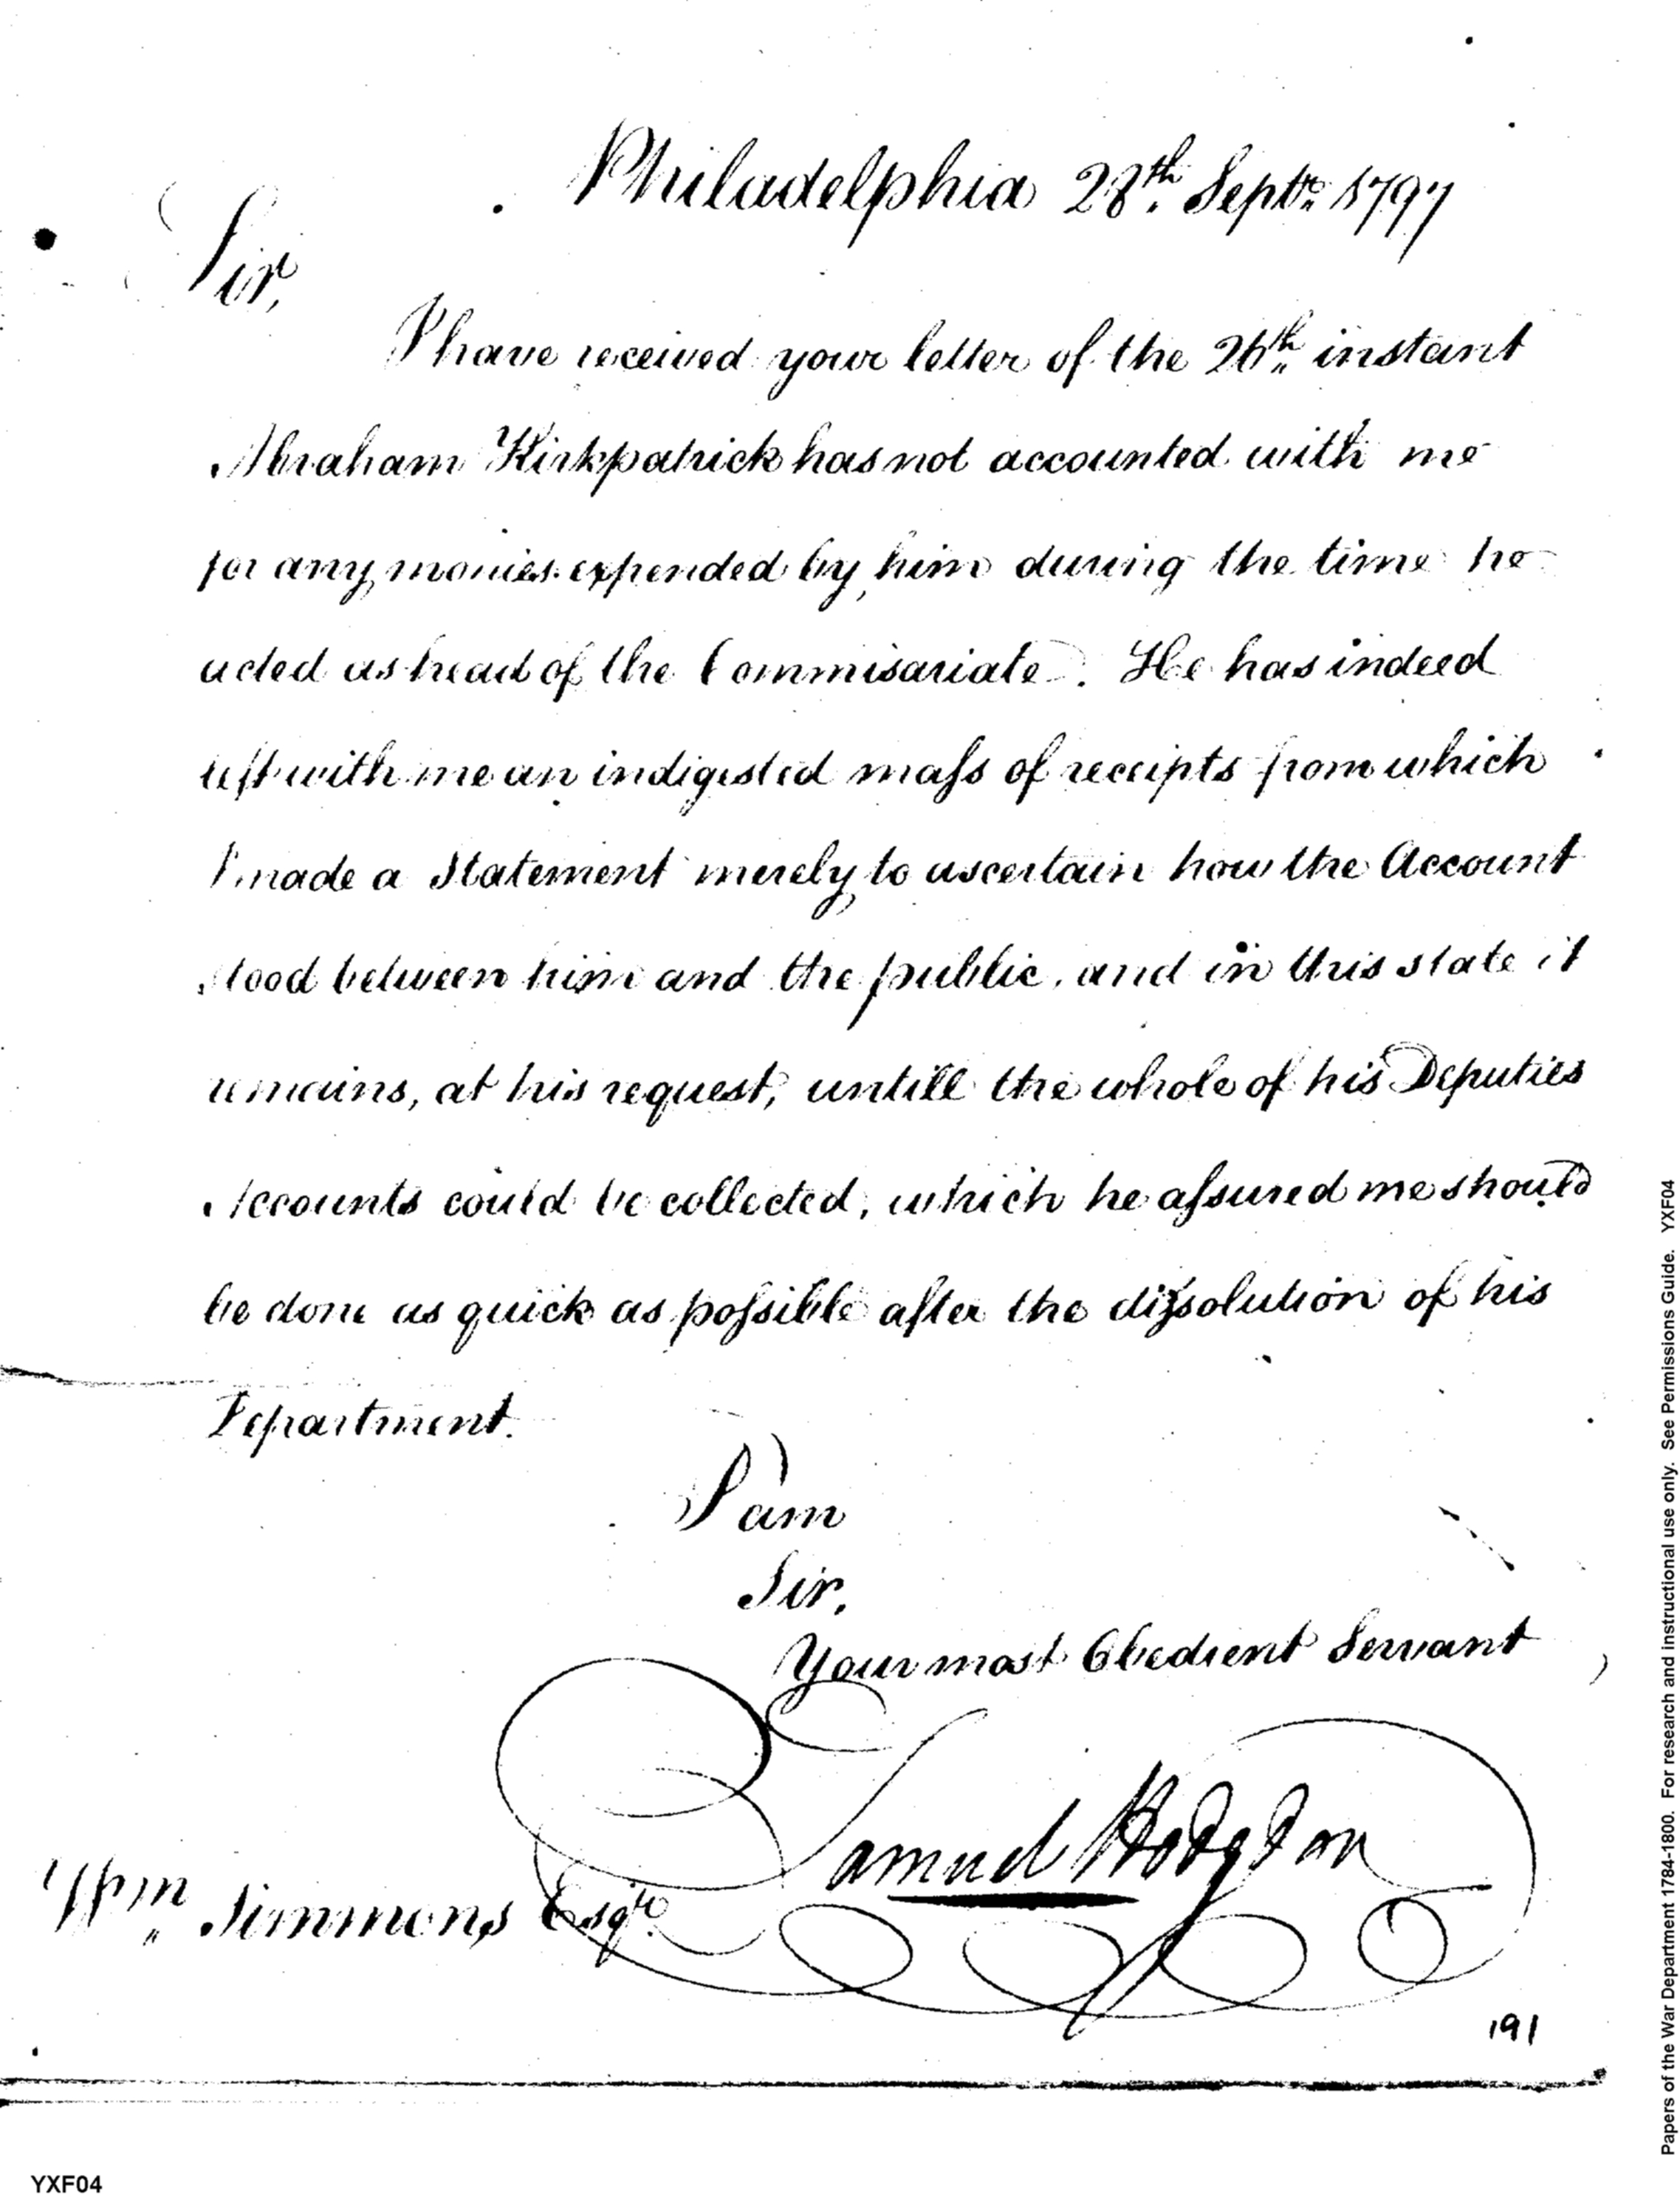 Philadelphia 28th Septr 1797
Sir,
I have received your letter of the 26th instant
Abraham Kirkpatrick has not accounted with me
for any monies expended by him during the time he
acted as head of the Commisariate. He has indeed
left with me an indigested mass of receipts from which
I made a Statement merely to ascertain how the Account
stood between him and the public, and in this state it
remains, at his request, untill the whole of his Deputies
Accounts could be collected, which he assured me should
be done as quick as possible after the dissolution of his
Department.
I am
Sir,
Your most Obedient Servant
Samuel Hodgdon
Wm Simmons Esqr
191
YXF04
Papers of the War Department 1784-1800. For research and instructional use only. See Permissions Guide. YXF04